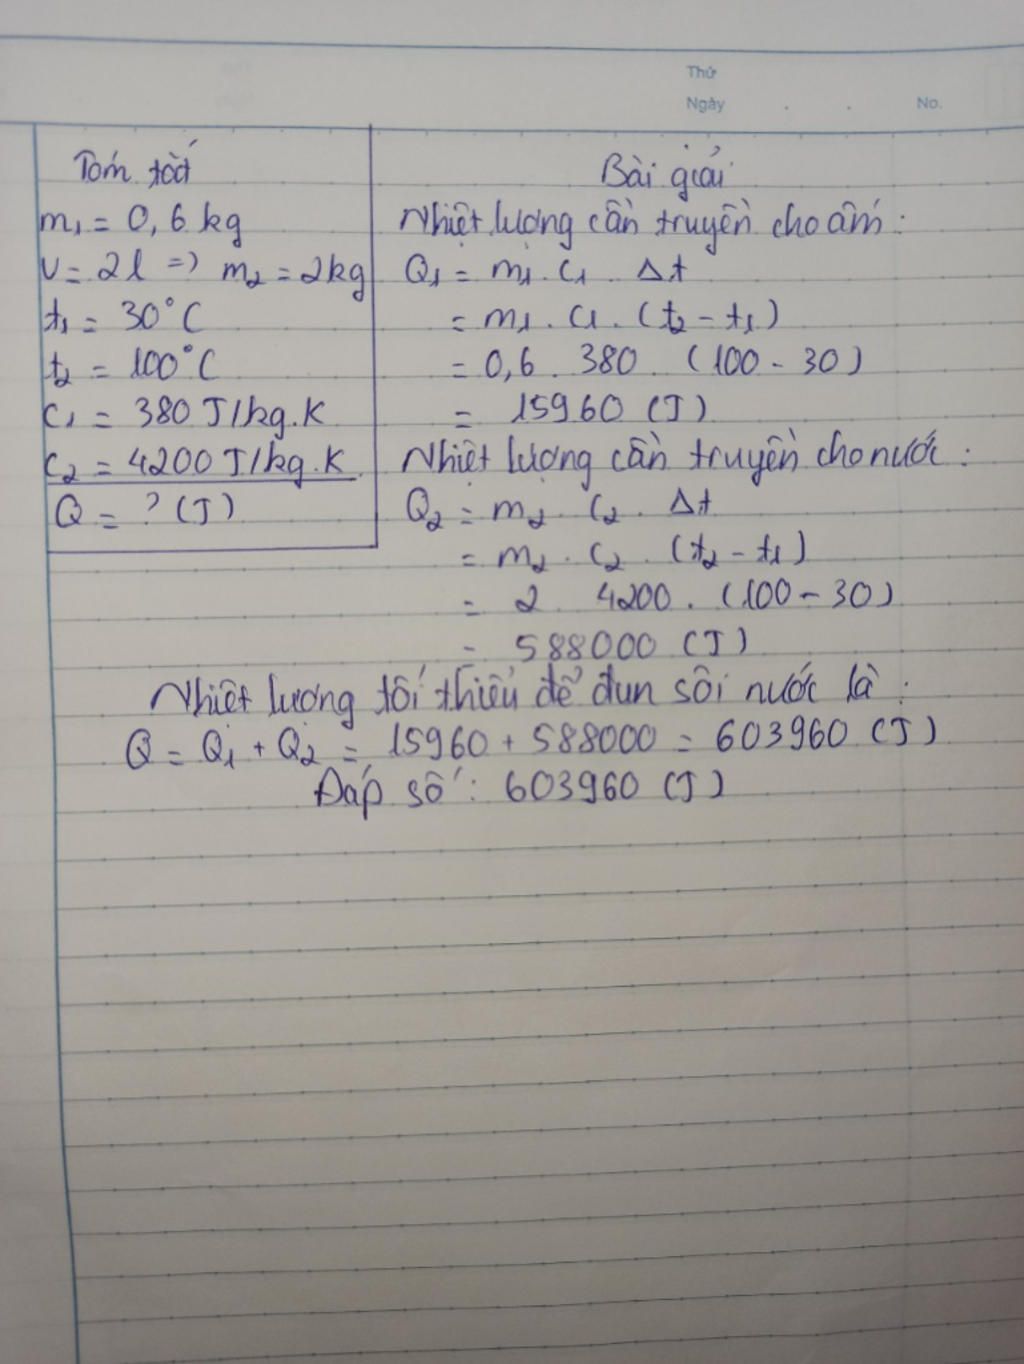 Thứ
Ngày . . No.
Tóm tắt
m₁ = 0,6 kg
V = 2l => m₂ = 2kg
t₁ = 30°C
t₂ = 100°C
c₁ = 380 J/kg.K
c₂ = 4200 J/kg.K
Q = ? (J)
Bài giải
Nhiệt lượng cần truyền cho ấm:
Q₁ = m₁ . c₁ . Δt
= m₁ . c₁ . (t₂ - t₁)
= 0,6 . 380 . (100 - 30)
= 15960 (J)
Nhiệt lượng cần truyền cho nước:
Q₂ = m₂ . c₂ . Δt
= m₂ . c₂ . (t₂ - t₁)
= 2 . 4200 . (100 - 30)
= 588000 (J)
Nhiệt lượng tối thiểu để đun sôi nước là:
Q = Q₁ + Q₂ = 15960 + 588000 = 603960 (J)
Đáp số: 603960 (J)